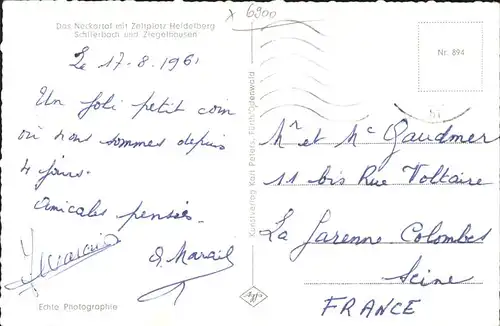 Das Neckartal mit Zeltplatz Heidelberg
Schlierbach und Ziegelhausen
x 6900
Le 17-8.1961
Un joli petit coin
où nous sommes depuis
4 jours.
Amicales pensées.
Marail
Echte Photographie
Kunstverlag Karl Peters, Fürth/Odenwald
Agfa
Nr. 894
Mr et Me Gaudmer
11 bis Rue Voltaire
La Garenne. Colombes
Seine
FRANCE